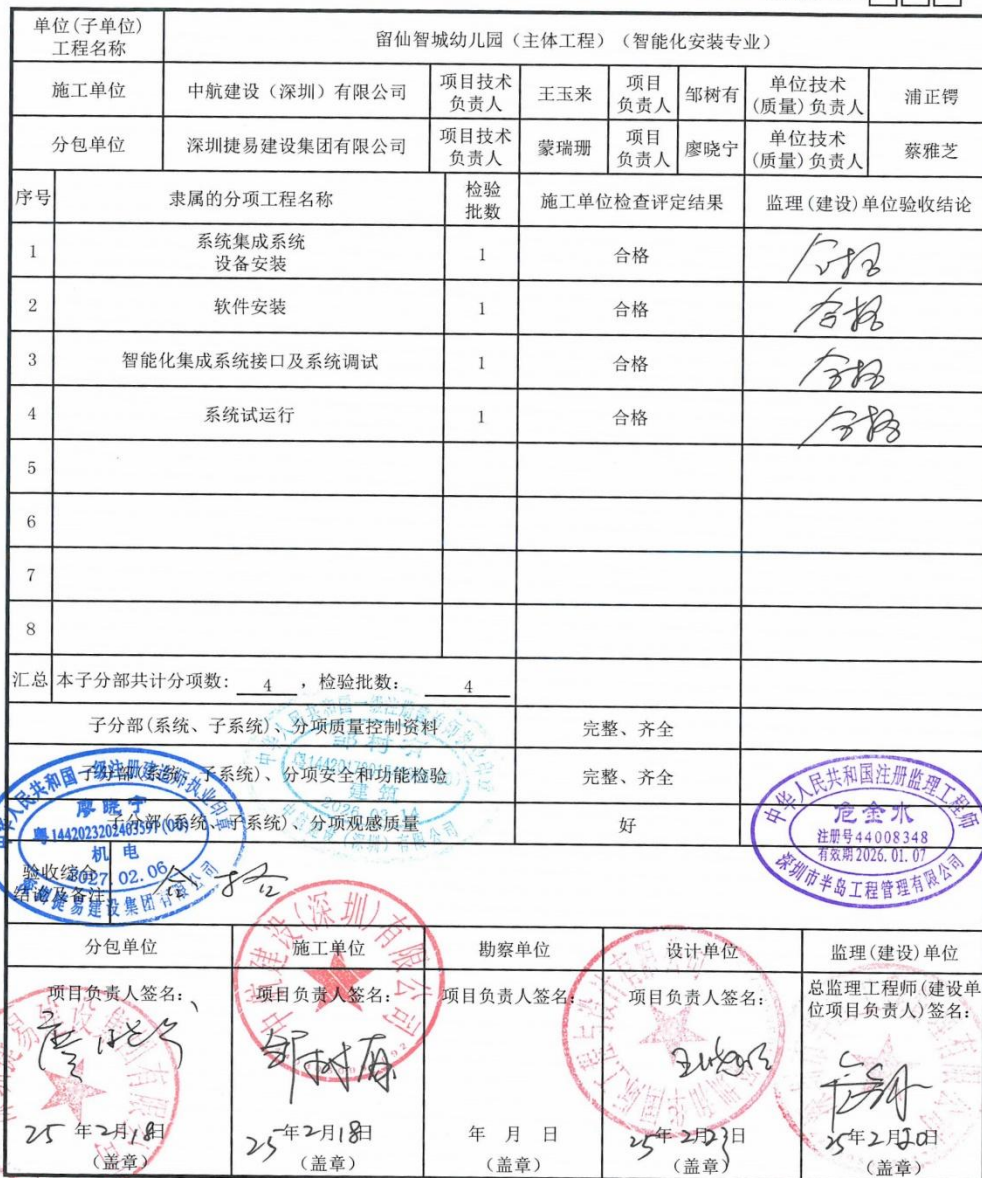 单位(子单位)
工程名称
留仙智城幼儿园(主体工程)(智能化安装专业)
施工单位
中航建设(深圳)有限公司
项目技术
负责人
王玉来
项目
负责人
邹树有
单位技术
(质量)负责人
浦正锷
分包单位
深圳捷易建设集团有限公司
项目技术
负责人
蒙瑞珊
项目
负责人
廖晓宁
单位技术
(质量)负责人
蔡雅芝
序号
隶属的分项工程名称
检验
批数
施工单位检查评定结果
监理(建设)单位验收结论
1
系统集成系统
设备安装
1
合格
合格
2
软件安装
1
合格
合格
3
智能化集成系统接口及系统调试
1
合格
合格
4
系统试运行
1
合格
合格
5
6
7
8
汇总
本子分部共计分项数: 4 ,检验批数: 4
子分部(系统、子系统)、分项质量控制资料
完整、齐全
子分部(系统、子系统)、分项安全和功能检验
完整、齐全
子分部(系统、子系统)、分项观感质量
好
中华人民共和国一级注册建造师执业印章
廖晓宁
粤1442023202403597(00)
机电
2027.02.06
深圳捷易建设集团有限公司
建筑
中华人民共和国注册监理工程师
危金水
注册号44008348
有效期2026.01.07
深圳市半岛工程管理有限公司
验收综合
结论及备注
合格
分包单位
施工单位
勘察单位
设计单位
监理(建设)单位
项目负责人签名:
廖晓宁
25年2月18日
(盖章)
项目负责人签名:
邹树有
25年2月18日
(盖章)
中航建设(深圳)有限公司
项目负责人签名:
年 月 日
(盖章)
项目负责人签名:
25年2月23日
(盖章)
总监理工程师(建设单
位项目负责人)签名:
25年2月20日
(盖章)